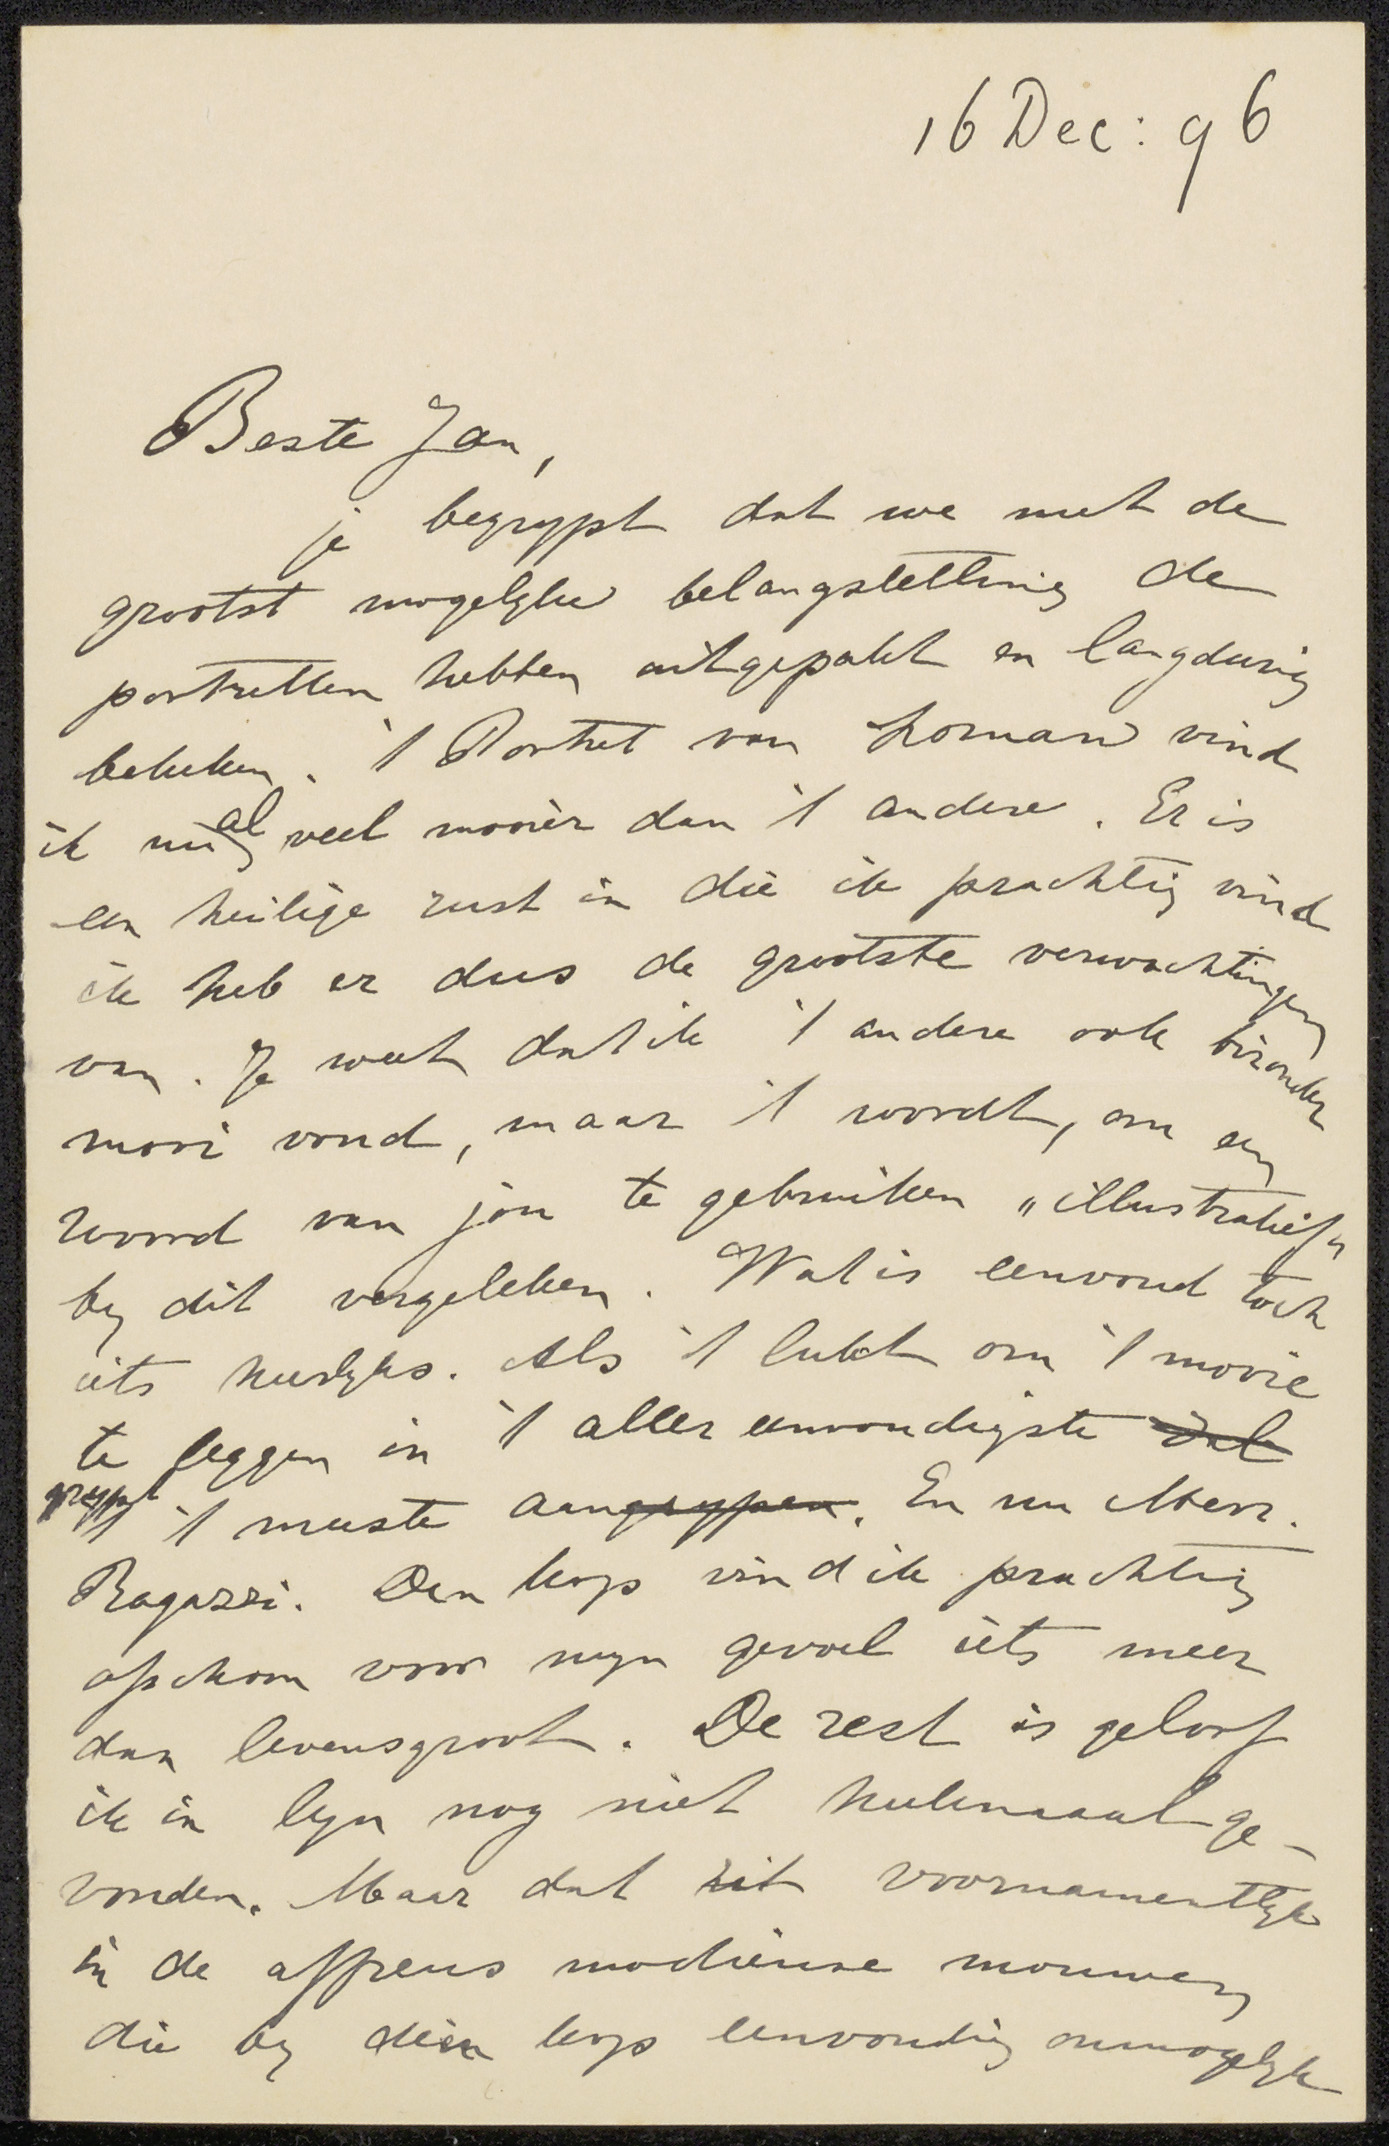 16 Dec: 96
Beste Jan,
je begrypt dat we met de
grootst mogelyke belangstelling de
portretten hebben uitgepakt en langdurig
bekeken. 't Portret van Loman vind
ik nu al veel mooier dan 't andere. Er is
een heilige rust in die ik prachtig vind
ik heb er dus de grootste verwachtingen
van. Je weet dat ik 't andere ook bizonder
mooi vond, maar 't wordt, om een
woord van jou te gebruiken „illustratief"
by dit vergeleken. Wat is eenvoud toch
iets heerlyks. Als 't lukt om 't mooie
te leggen in 't aller eenvoudigste dat
grypt 't meeste aangrypen. En nu Mevr.
Ragazzi. Den kop vind ik prachtig
ofschoon voor myn gevoel iets meer
dan levensgroot. De rest is geloof
ik in lyn nog niet heelemaal ge-
vonden. Maar dat zit voornamentlyk
in de affreus modieuse mouwen
die by dien kop eenvoudig onmogelyk